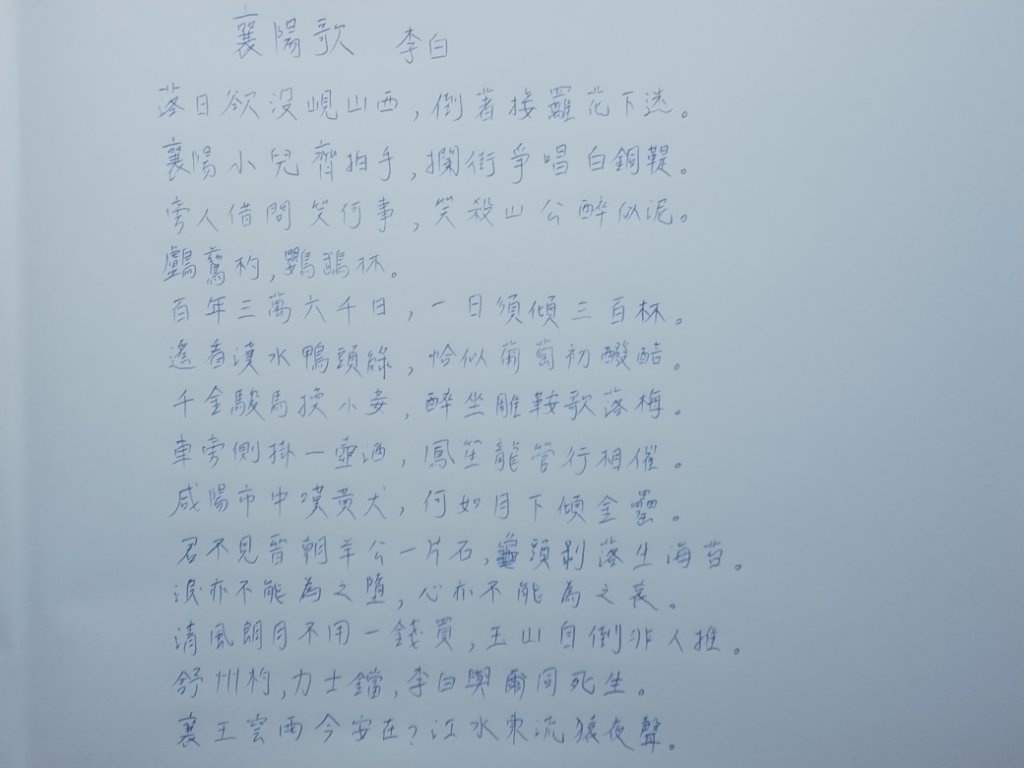 襄陽歌 李白
落日欲沒峴山西,倒著接羅花下迷。
襄陽小兒齊拍手,攔街爭唱白銅鞮。
旁人借問笑何事,笑殺山公醉似泥。
鸕鶿杓,鸚鵡杯。
百年三萬六千日,一日須傾三百杯。
遙看漢水鴨頭綠,恰似葡萄初醱醅。
千金駿馬換小妾,醉坐雕鞍歌落梅。
車旁側掛一壺酒,鳳笙龍管行相催。
咸陽市中嘆黃犬,何如月下傾金罍。
君不見晉朝羊公一片石,龜頭剝落生海苔。
淚亦不能為之墮,心亦不能為之哀。
清風朗月不用一錢買,玉山自倒非人推。
舒州杓,力士鐺,李白與爾同死生。
襄王雲雨今安在?江水東流猿夜聲。